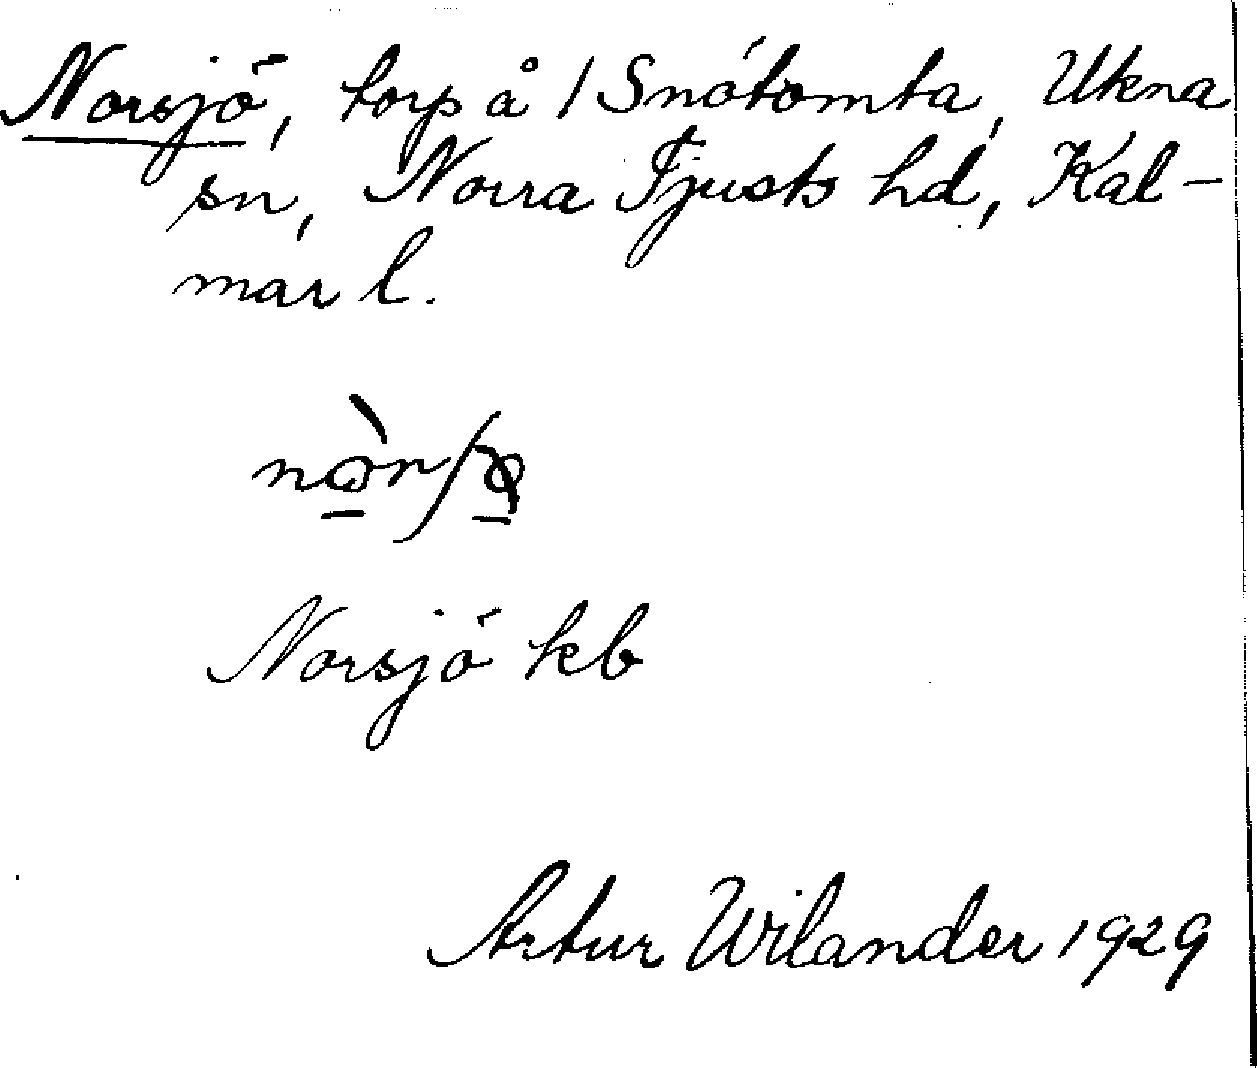 Norsjö, torp å 1 Snötomta, Ukna
sn, Norra Tjusts hd, Kal-
mar l.
Norsjö kb
Artur Wilander 1929